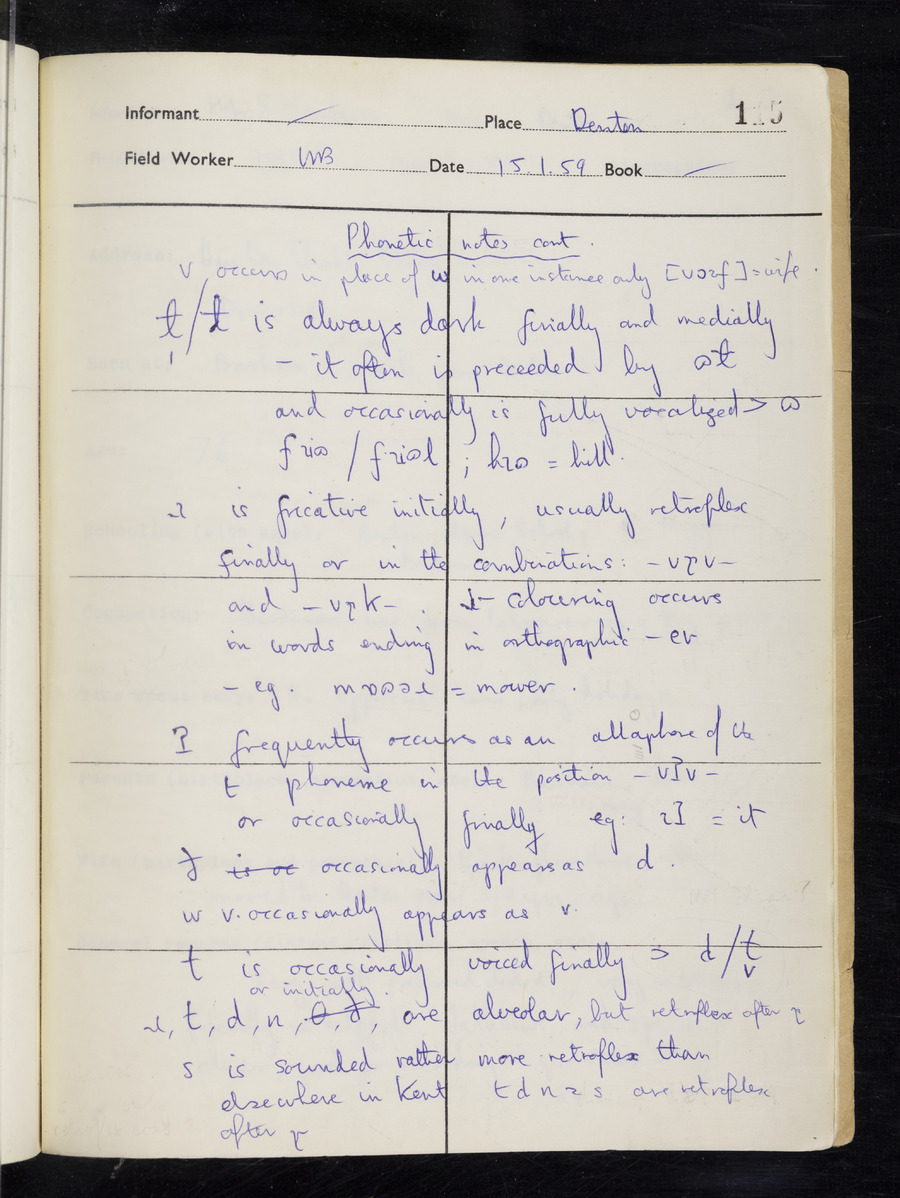 Informant Place Denton 115
Field Worker WB Date 15.1.59 Book
Phonetic notes cont.
v occurs in place of w in one instance only [vɔɪf] = wife.
ɫ/ɫ is always dark finially and medially
– it often is preceeded by ɷɫ
and occasionally is fully vocalized > ɷ
/ ; = hill.
ɹ is fricative initially, usually retroflex
finally or in the combinations: – vɽv –
and – vɽk – . ɹ – colouring occurs
in words ending in orthographic – er
– eg. = mower.
ʔ frequently occurs as an allophone of the
t phoneme in the position – vʔv –
or occasionally finally eg: ɪʔ = it
ð is oc occasionally appears as d
w v. occasionally appears as v.
t is occasionally voiced finally > d/t̬
or initially.
ɹ, t, d, n, θ, ð, are alveolar, but retroflex after ɽ
s is sounded rather more retroflex than
elsewhere in Kent t d n z s are retroflex
after ɽ